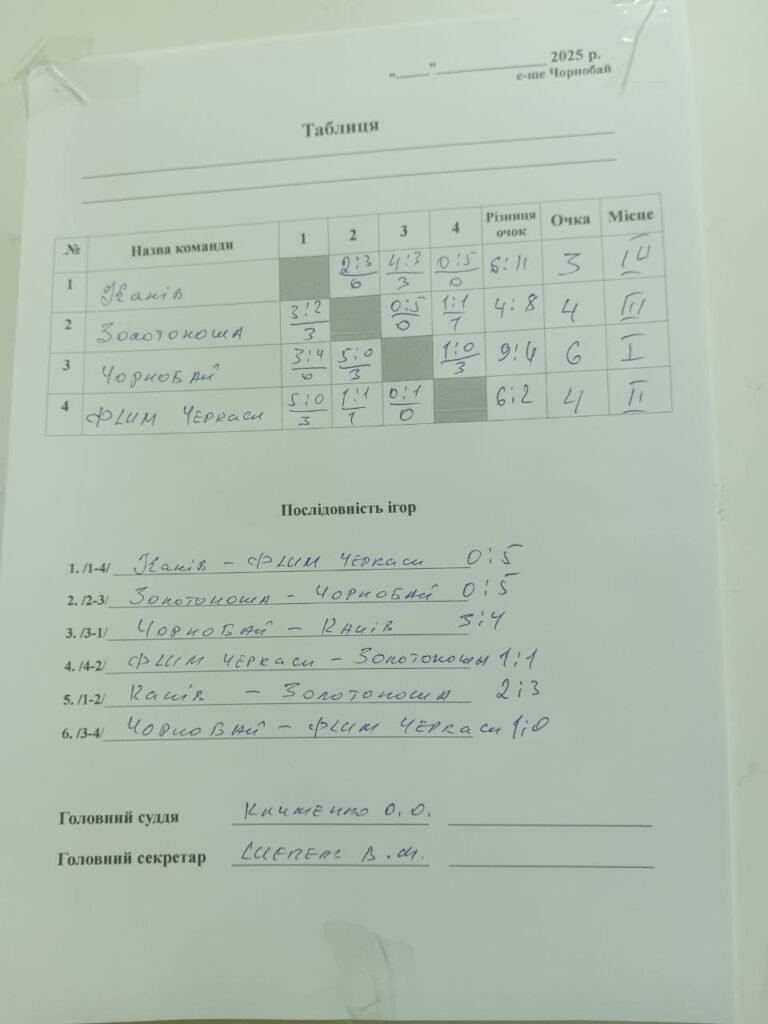 „____"______________ 2025 р.
с-ше Чорнобай
Таблиця
№ Назва команди 1 2 3 4 Різниця очок Очка Місце
1 Канів 2:3/0 4:3/3 0:5/0 6:11 3 IV
2 Золотоноша 3:2/3 0:5/0 1:1/1 4:8 4 III
3 Чорнобай 3:4/0 5:0/3 1:0/3 9:4 6 I
4 ФЛИМ Черкаси 5:0/3 1:1/1 0:1/0 6:2 4 II
Послідовність ігор
1. /1-4/ Канів - ФЛИМ Черкаси 0:5
2. /2-3/ Золотоноша - Чорнобай 0:5
3. /3-1/ Чорнобай - Канів 3:4
4. /4-2/ ФЛИМ Черкаси - Золотоноша 1:1
5. /1-2/ Канів - Золотоноша 2:3
6. /3-4/ Чорнобай - ФЛИМ Черкаси 1:0
Головний суддя Клименко О.О.
Головний секретар В.М.